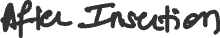 After Insertion